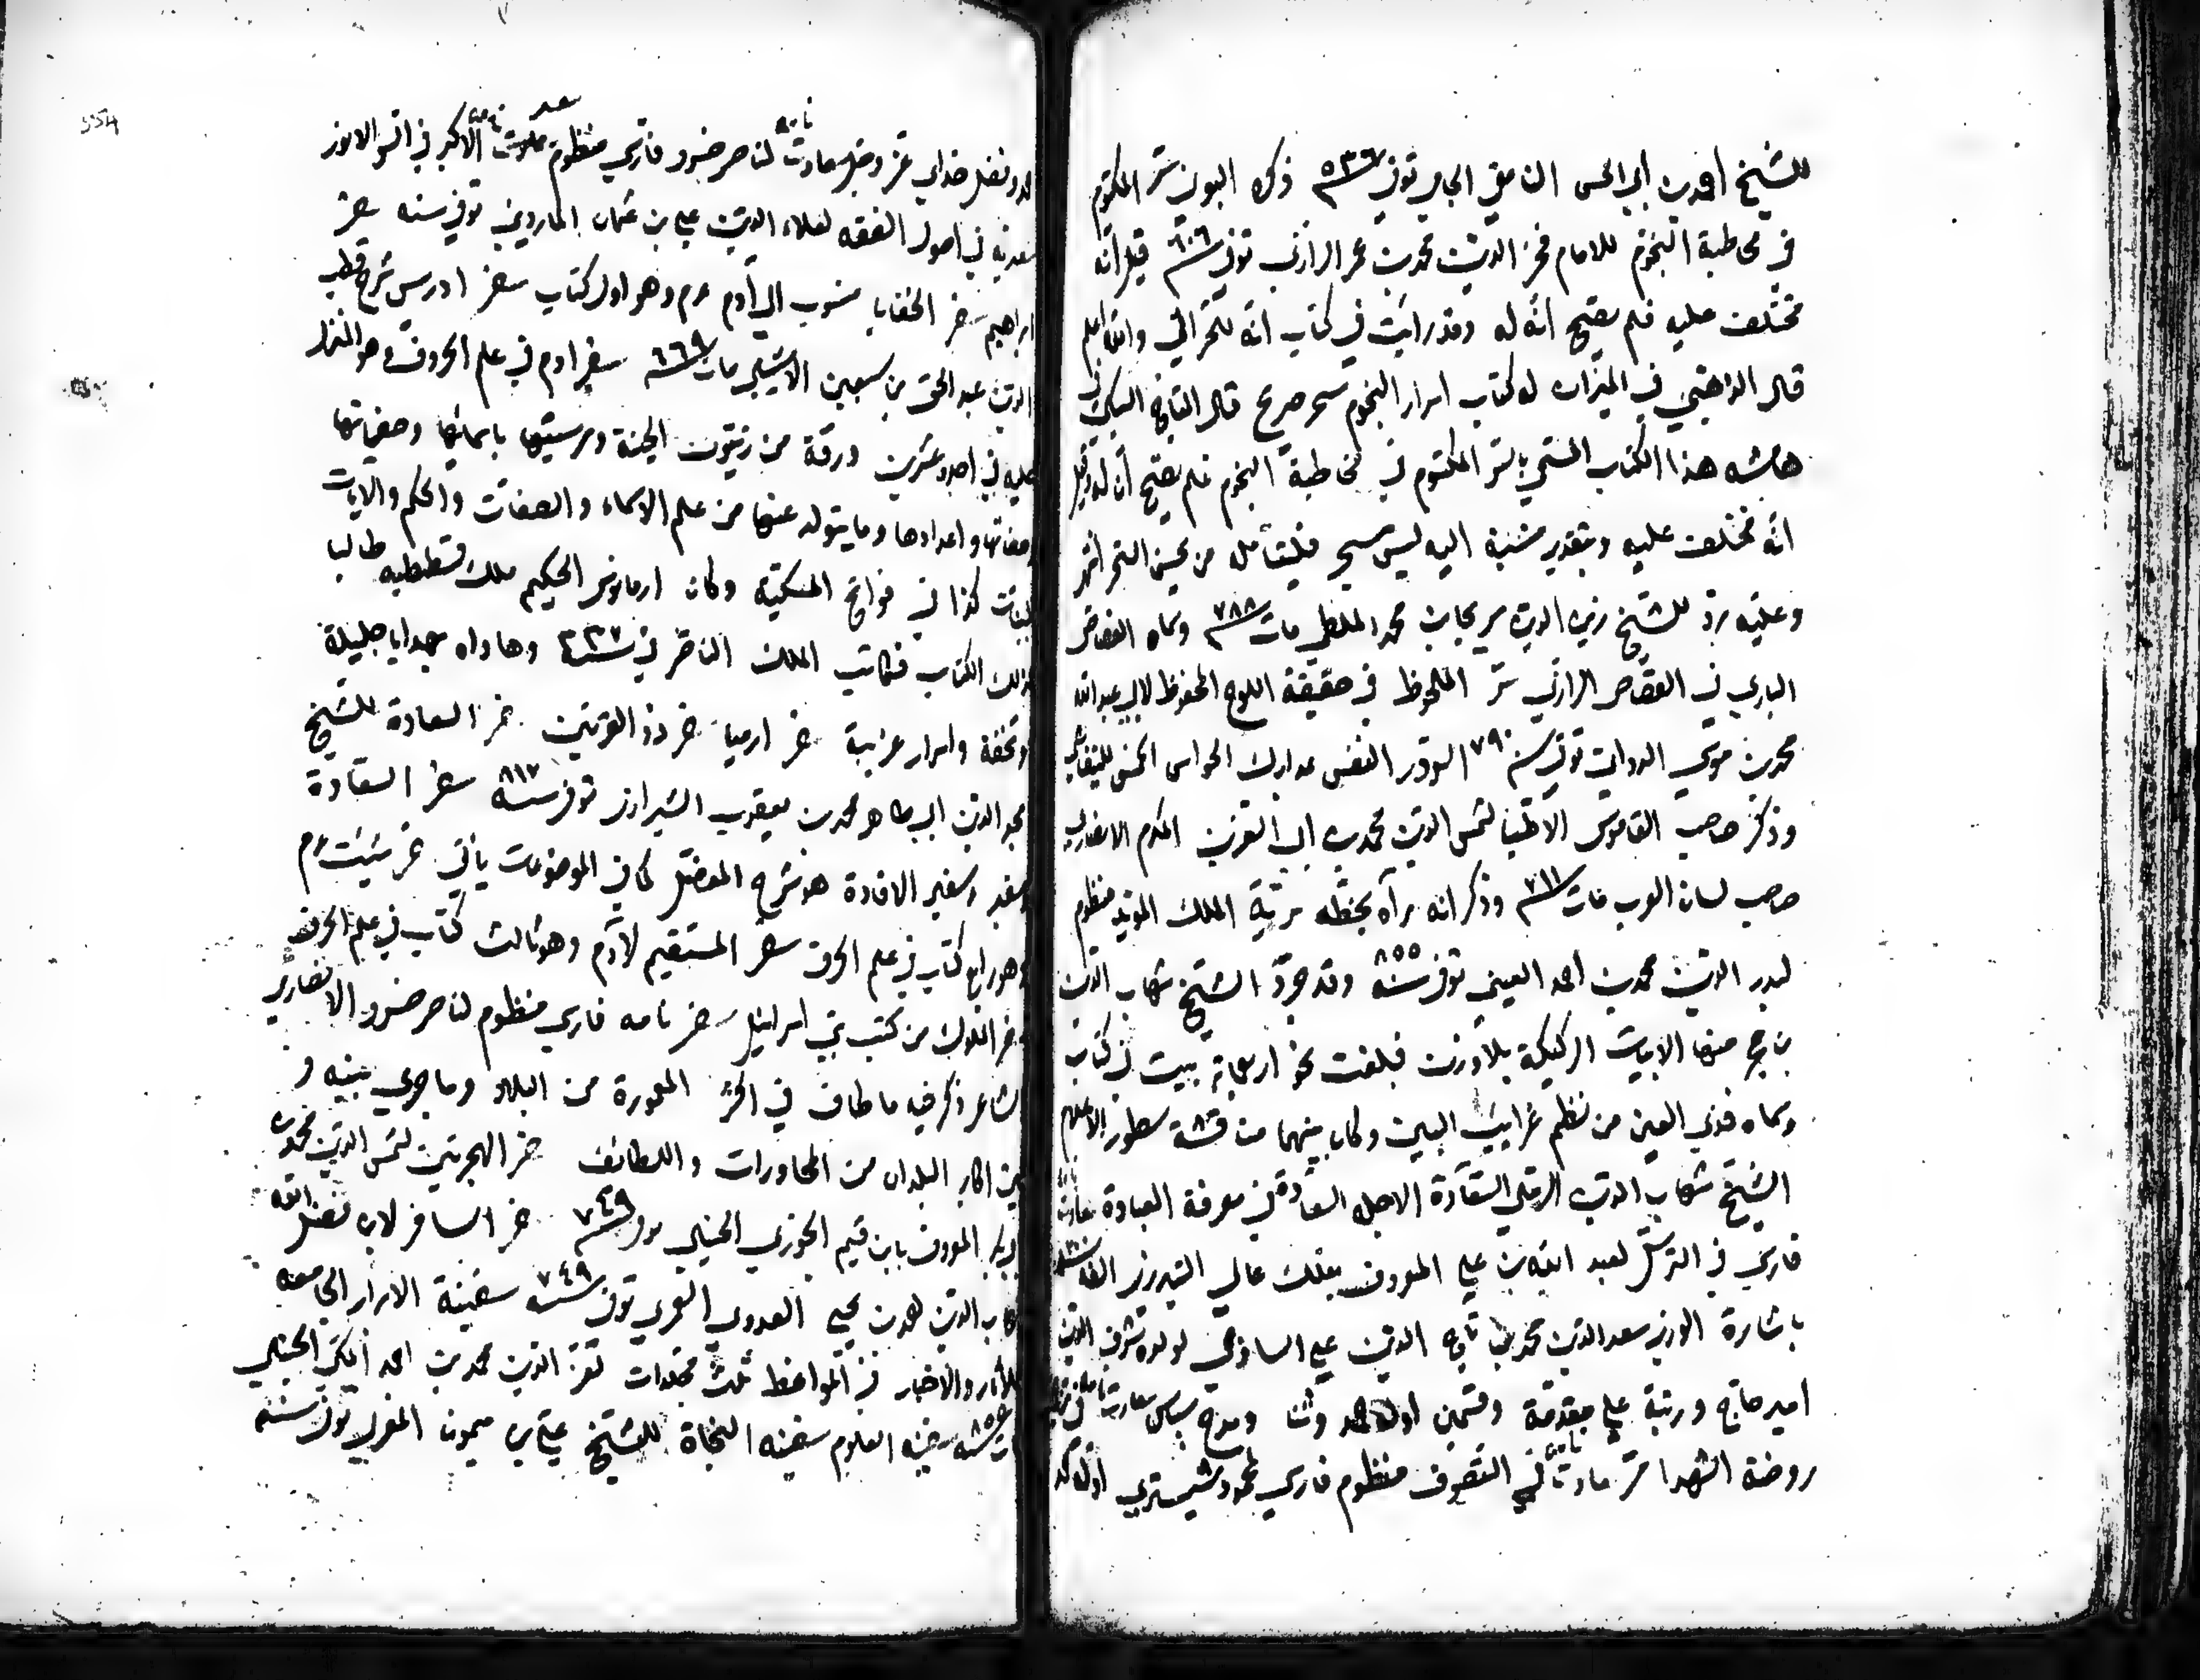 للشيخ احمد بن أبي الحسن النامقي الجامي توفي ٥٣٦ ذكره البوني سر المكتوم
في مخاطبة النجوم للامام فخر الدين محمد بن عمر الرازي توفي ٦٠٦ قيل انه
مختلف عليه فلم يصح انه له وقد رايت في كتاب انه للحرالي والله اعلم
قال الذهبي في الميزان له كتاب اسرار النجوم سحر صريح قال التاج السبكي في
هامشه هذا الكتاب المسمى بالسر المكتوم في مخاطبة النجوم فلم يصح أنه له وقيل
انه مختلف عليه وبتقدير نسبة اليه ليس بسحر فليتأمله من يحسن السحر انتهى
وعليه رد للشيخ زين الدين سريجا بن محمد الملطي مات ٧٨٨ وسماه انقضاض
البازي في انقضاض الرازي سر الملحوظ في حقيقة اللوح المحفوظ لابي عبد الله
محمد بن موسى الدوالي توفي سنة ٧٩٠ سرور النفس بمدارك الحواس الخمس للتيفاشي
وذكر صاحب القاموس الاطبا لشمس الدين محمد بن ابي العز بن المكرم الانصاري
صاحب لسان العرب مات ٧١١ وذكر انه رآه بخطه سيرة الملك المويد منظوم
لبدر الدين محمود بن احمد العيني توفي سنة ٨٥٥ وقد جرد الشيخ شهاب الدين
بن حجر منها الابيات الركيكة بلا وزن فبلغت نحو اربعماية بيت في كتاب
وسماه قذى العين من نظم غراب البين وكان بينهما منافسة سطور الاعلام
الشيخ شهاب الدين الرملي السعادة الاصل السعادة في معرفة العبادة سعادت نامه
فارسي في الترسل لعبد الله بن علي المعروف بفلك عالي التبريزي الفه سنة
باشارة الوزير سعد الدين محمد بن تاج الدين علي الساوجي لولده شرف الدين
امير حاج ورتبة على مقدمة وقسمين اوله حمد وثنا ومدح سپاس سعادت نامه في ترجمة
روضة الشهدا مر سعادت نامه في التصوف منظوم فارسي لمحمود شبستري اوله كه
حمد وفضل خداي عز وجل سعادت نامه لناصر خسرو فارسي منظوم سعد الاكبر في السر الانور
سعديه في اصول الفقه لعلاء الدين علي بن عثمان المارديني توفي سنه سفر
ابراهيم سفر الخفايا منسوب الى آدم عم وهو اول كتاب سفر ادريس شرح قطب
الدين عبد الحق بن سبعين الاشبيلي مات ٦٦٩ سفر ادم في علم الحروف وهو المنزل
عليه في احد وعشرين ورقة من زيتون الجنة ومرسيتها باسمائها وصفاتها
وصفاتها واعدادها وما يتولد عنها من علم الاسماء والصفات والحكم والايات
البينات كذا في فواتح المسكية وكان ارمانوس الحكيم ملك قسطنطنيه طالبا
لذلك الكتاب فكاتب الملك الناصر في سنة ٣٣٧ وهاداه بهدايا جليلة
وتحفة واسرار غريبة سفر ارميا سفر ذو القرنين سفر السعادة للشيخ
مجد الدين ابي طاهر محمد بن يعقوب الشيرازي توفي سنة ٨١٧ سفر السعادة
وسفير الافادة هو شرح المفصل كما في الموضوعات يأتي سفر شيث عم
وهو رابع كتاب في علم الحرف سفر المستقيم لآدم وهو ثالث كتاب في علم الحرف
سفر الملوك من كتب بني اسرائيل سفر نامه فارسي منظوم لناصر خسرو الانصاري
الشاعر ذكر فيه ما طاف في اكثر المعمورة من البلاد وما جرى بينه و
بين اكابر البلدان من المحاورات واللطائف سفر الهجرتين لشمس الدين محمد بن
ابي بكر المعروف بابن قيم الجوزي الحنبلي توفي ٧٤٩ سفر المسافر لابن فضل الله
شهاب الدين احمد بن يحيى العدوي العمري توفي سنة ٧٤٩ سفينة الابرار الجامعه
للآثار والاخبار في المواعظ ثلث مجلدات لعز الدين محمد بن احمد المكي الحنبلي
مات سنة ٨٥٥ سفينه العلوم سفينه النجاة للشيخ علي بن ميمون المغربي توفي سنه